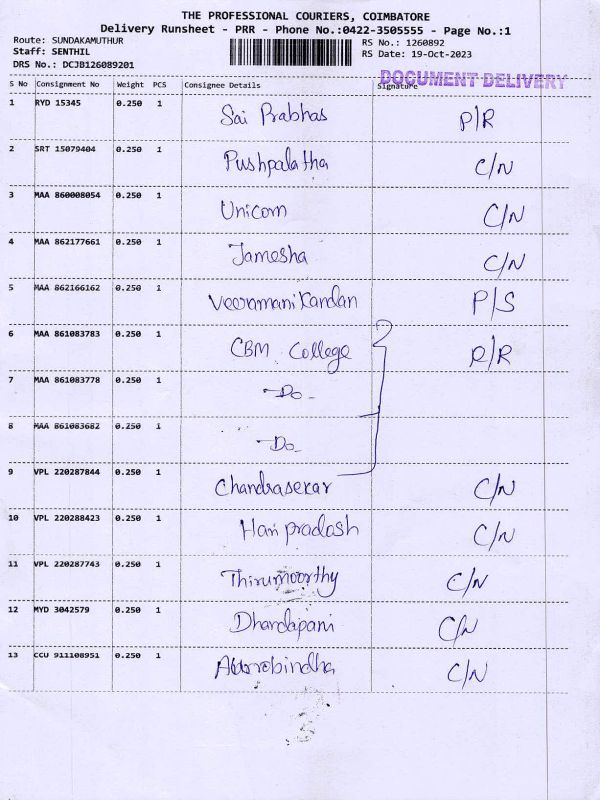 THE PROFESSIONAL COURIERS, COIMBATORE
Delivery Runsheet - PRR - Phone No.:0422-3505555 - Page No.:1
Route: SUNDAKAMUTHUR
RS No.: 1260892
Staff: SENTHIL
RS Date: 19-Oct-2023
DRS No.: DCJB126089201
DOCUMENT DELIVERY
S No Consignment No Weight PCS Consignee Details Signature
1 RYD 15345 0.250 1 Sai Prabhas P/R
2 SRT 15079404 0.250 1 Pushpalatha C/N
3 MAA 860008054 0.250 1 Unicorn C/N
4 MAA 862177661 0.250 1 Jamesha C/N
5 MAA 862166162 0.250 1 Veeramanikandan P/S
6 MAA 861083783 0.250 1 CBM College R/R
7 MAA 861083778 0.250 1 -Do-
8 MAA 861083682 0.250 1 -Do-
9 VPL 220287844 0.250 1 Chandrasekar C/N
10 VPL 220288423 0.250 1 Hari pradash C/N
11 VPL 220287743 0.250 1 Thirumoorthy C/N
12 MYD 3042579 0.250 1 Dhandapani C/N
13 CCU 911108951 0.250 1 C/N